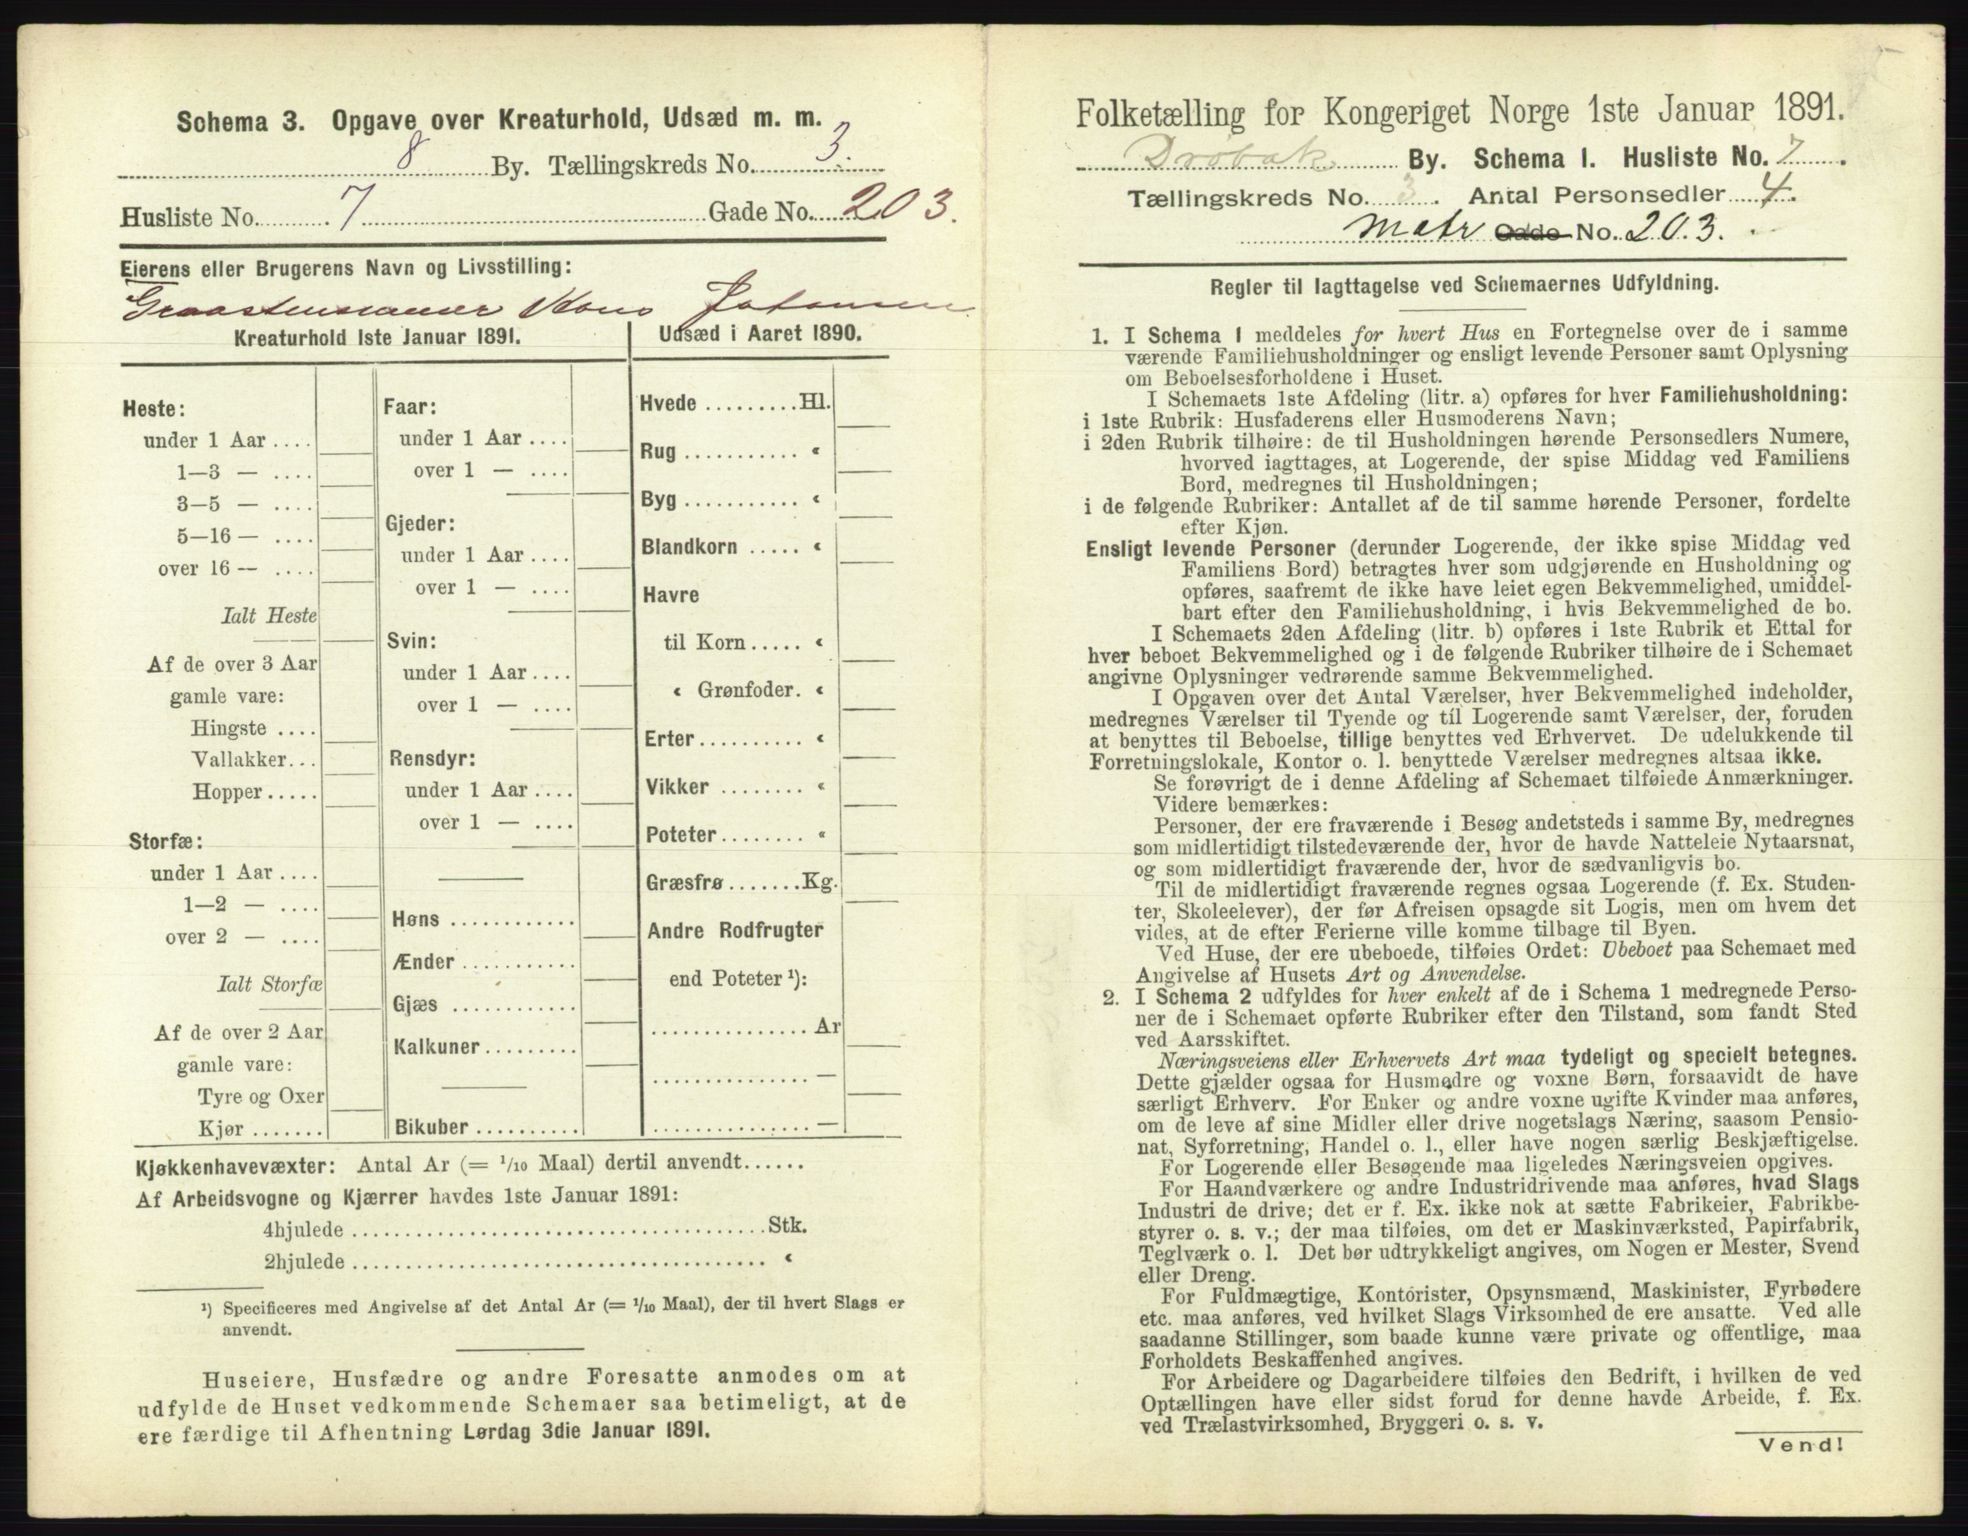 Schema 3. Opgave over Kreaturhold, Udsæd m. m.
8 By. Tællingskreds No. 3.
Husliste No. 7 Gade No. 203.
Eierens eller Brugerens Navn og Livsstilling:
Hans Johansen
Kreaturhold 1ste Januar 1891.
Heste:
under 1 Aar ....
1—3 — ....
3—5 — ....
5—16 — ....
over 16 — ....
Ialt Heste
Af de over 3 Aar
gamle vare:
Hingste ....
Vallakker...
Hopper.....
Storfæ:
under 1 Aar ....
1—2 — ....
over 2 — ....
Ialt Storfæ
Af de over 2 Aar
gamle vare:
Tyre og Oxer
Kjør .......
Faar:
under 1 Aar ....
over 1 — ....
Gjeder:
under 1 Aar ....
over 1 — ....
Svin:
under 1 Aar ....
over 1 — ....
Rensdyr:
under 1 Aar ....
over 1 — ....
Høns ............
Ænder ...........
Gjæs ............
Kalkuner.........
Bikuber ..........
Udsæd i Aaret 1890.
Hvede .........Hl.
Rug ........... «
Byg ........... «
Blandkorn ..... «
Havre
til Korn ..... «
« Grønfoder. «
Erter.......... «
Vikker ........ «
Poteter........ «
Græsfrø .......Kg.
Andre Rodfrugter
end Poteter ¹):
............... Ar
............... —
............... —
Kjøkkenhavevæxter: Antal Ar (= 1/10 Maal) dertil anvendt......
Af Arbeidsvogne og Kjærrer havdes 1ste Januar 1891:
4hjulede ........................................Stk.
2hjulede ........................................ «
¹) Specificeres med Angivelse af det Antal Ar (= 1/10 Maal), der til hvert Slags er
anvendt.
Huseiere, Husfædre og andre Foresatte anmodes om at
udfylde de Huset vedkommende Schemaer saa betimeligt, at de
ere færdige til Afhentning Lørdag 3die Januar 1891.
Folketælling for Kongeriget Norge 1ste Januar 1891.
Drøbak By. Schema 1. Husliste No. 7.
Tællingskreds No. 3. Antal Personsedler 4.
Matr Gade No. 203.
Regler til Iagttagelse ved Schemaernes Udfyldning.
1. I Schema 1 meddeles for hvert Hus en Fortegnelse over de i samme
værende Familiehusholdninger og ensligt levende Personer samt Oplysning
om Beboelsesforholdene i Huset.
I Schemaets 1ste Afdeling (litr. a) opføres for hver Familiehusholdning:
i 1ste Rubrik: Husfaderens eller Husmoderens Navn;
i 2den Rubrik tilhøire: de til Husholdningen hørende Personsedlers Numere,
hvorved iagttages, at Logerende, der spise Middag ved Familiens
Bord, medregnes til Husholdningen;
i de følgende Rubriker: Antallet af de til samme hørende Personer, fordelte
efter Kjøn.
Ensligt levende Personer (derunder Logerende, der ikke spise Middag ved
Familiens Bord) betragtes hver som udgjørende en Husholdning og
opføres, saafremt de ikke have leiet egen Bekvemmelighed, umiddel-
bart efter den Familiehusholdning, i hvis Bekvemmelighed de bo.
I Schemaets 2den Afdeling (litr. b) opføres i 1ste Rubrik et Ettal for
hver beboet Bekvemmelighed og i de følgende Rubriker tilhøire de i Schemaet
angivne Oplysninger vedrørende samme Bekvemmelighed.
I Opgaven over det Antal Værelser, hver Bekvemmelighed indeholder,
medregnes Værelser til Tyende og til Logerende samt Værelser, der, foruden
at benyttes til Beboelse, tillige benyttes ved Erhvervet. De udelukkende til
Forretningslokale, Kontor o. l. benyttede Værelser medregnes altsaa ikke.
Se forøvrigt de i denne Afdeling af Schemaet tilføiede Anmærkninger.
Videre bemærkes:
Personer, der ere fraværende i Besøg andetsteds i samme By, medregnes
som midlertidigt tilstedeværende der, hvor de havde Natteleie Nytaarsnat,
og som midlertidigt fraværende der, hvor de sædvanligvis bo.
Til de midlertidigt fraværende regnes ogsaa Logerende (f. Ex. Studen-
ter, Skoleelever), der før Afreisen opsagde sit Logis, men om hvem det
vides, at de efter Ferierne ville komme tilbage til Byen.
Ved Huse, der ere ubeboede, tilføies Ordet: Ubeboet paa Schemaet med
Angivelse af Husets Art og Anvendelse.
2. I Schema 2 udfyldes for hver enkelt af de i Schema 1 medregnede Perso-
ner de i Schemaet opførte Rubriker efter den Tilstand, som fandt Sted
ved Aarsskiftet.
Næringsveiens eller Erhvervets Art maa tydeligt og specielt betegnes.
Dette gjælder ogsaa for Husmødre og voxne Børn, forsaavidt de have
særligt Erhverv. For Enker og andre voxne ugifte Kvinder maa anføres,
om de leve af sine Midler eller drive nogetslags Næring, saasom Pensio-
nat, Syforretning, Handel o. l., eller have nogen særlig Beskjæftigelse.
For Logerende eller Besøgende maa ligeledes Næringsveien opgives.
For Haandværkere og andre Industridrivende maa anføres, hvad Slags
Industri de drive; det er f. Ex. ikke nok at sætte Fabrikeier, Fabrikbe-
styrer o. s. v.; der maa tilføies, om det er Maskinværksted, Papirfabrik,
Teglværk o. l. Det bør udtrykkeligt angives, om Nogen er Mester, Svend
eller Dreng.
For Fuldmægtige, Kontorister, Opsynsmænd, Maskinister, Fyrbødere
etc. maa anføres, ved hvilket Slags Virksomhed de ere ansatte. Ved alle
saadanne Stillinger, som baade kunne være private og offentlige, maa
Forholdets Beskaffenhed angives.
For Arbeidere og Dagarbeidere tilføies den Bedrift, i hvilken de ved
Optællingen have eller sidst forud for denne havde Arbeide, f. Ex.
ved Trælastvirksomhed, Bryggeri o. s. v.
Vend!